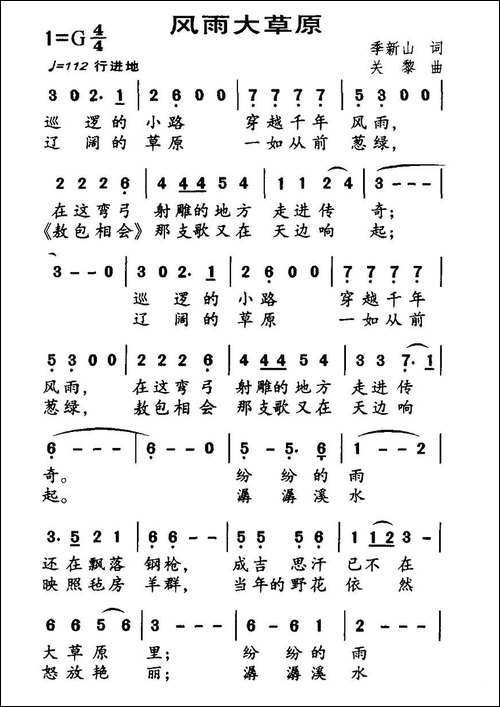 风雨大草原
1=G 4/4
♩=112 行进地
季新山 词
关黎 曲
3 0 2. 1 | 2 6 0 0 | 7 7 7 7 | 5 3 0 0 |
巡逻的小路 穿越千年 风雨,
辽阔的草原 一如从前 葱绿,
2 2 2 6 | 4 4 4 5 4 | 1 1 2 4 | 3 - - - |
在这弯弓 射雕的地方 走进传 奇;
《敖包相会》那支歌又在 天边响 起;
3 - - 0 | 3 0 2. 1 | 2 6 0 0 | 7 7 7 7 |
巡逻的小路 穿越千年
辽阔的草原 一如从前
5 3 0 0 | 2 2 2 6 | 4 4 4 5 4 | 3 3 7. 1 |
风雨, 在这弯弓 射雕的地方 走进传
葱绿, 敖包相会 那支歌又在 天边响
6 - - - | 6 - - 0 | 5 - 5. 6 | 1 - - 2 |
奇。 纷纷的雨
起。 潺潺溪水
3. 5 2 1 | 6 6 - - | 5 5 5 6 | 1 1 2 3 - |
还在飘落 钢枪, 成吉思汗 已不在
映照毡房 羊群, 当年的野花 依然
6 6 5 6 | 3 - - - | 6 - 6 1 | 2 - - - |
大草原 里; 纷纷的雨
怒放艳 丽; 潺潺溪水